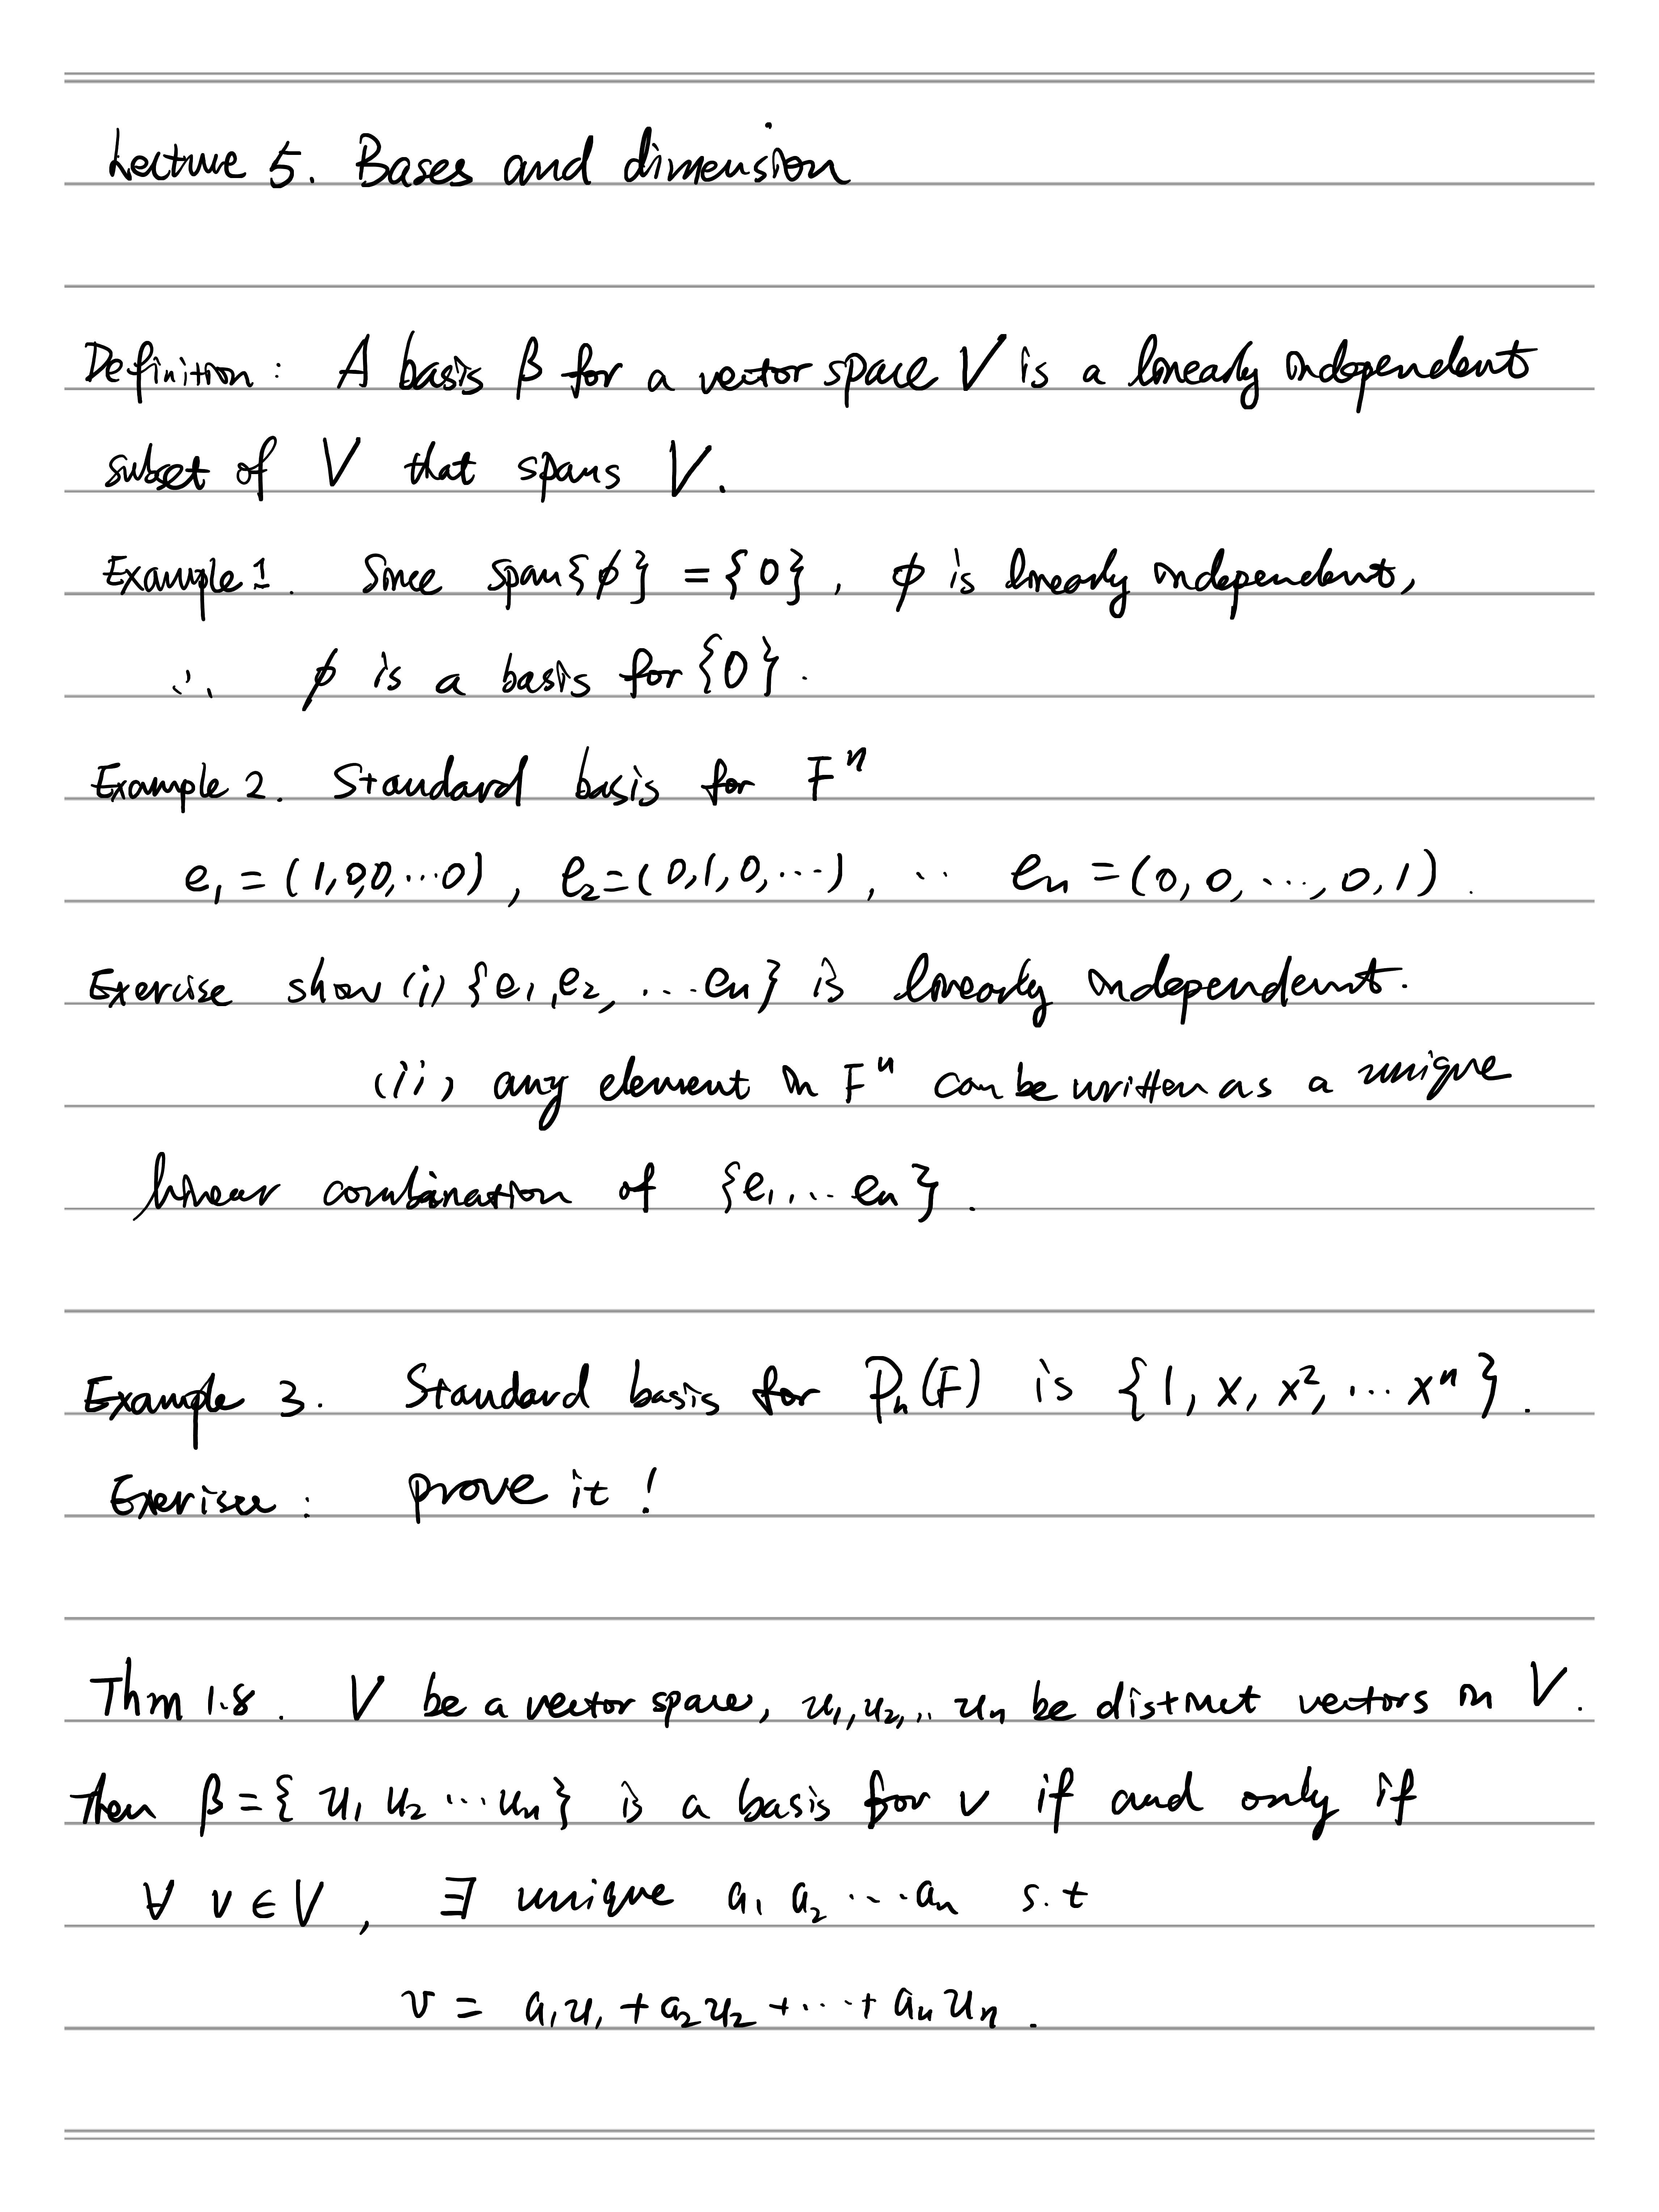 Lecture 5. Bases and dimension
Definition: A basis β for a vector space V is a linearly independent
subset of V that spans V.
Example 1. Since span{ϕ} = {0}, ϕ is linearly independent,
∴ ϕ is a basis for {0}.
Example 2. Standard basis for Fⁿ
e₁ = (1,0,0,...0), e₂=(0,1,0,...), ... eₙ =(0,0,...,0,1).
Exercise show (i) {e₁,e₂,...eₙ} is linearly independent.
(ii) any element in Fⁿ can be written as a unique
linear combination of {e₁,...eₙ}.
Example 3. Standard basis for Pₙ(F) is {1, x, x², ... xⁿ}.
Exerisce: prove it!
Thm 1.8. V be a vector space, u₁,u₂,.. uₙ be distinct vectors in V.
Then β={u₁ u₂ ... uₙ} is a basis for v if and only if
∀ v ∈ V, ∃ unique a₁ a₂ ... aₙ s.t
v = a₁u₁ + a₂u₂ + ... + aₙuₙ.